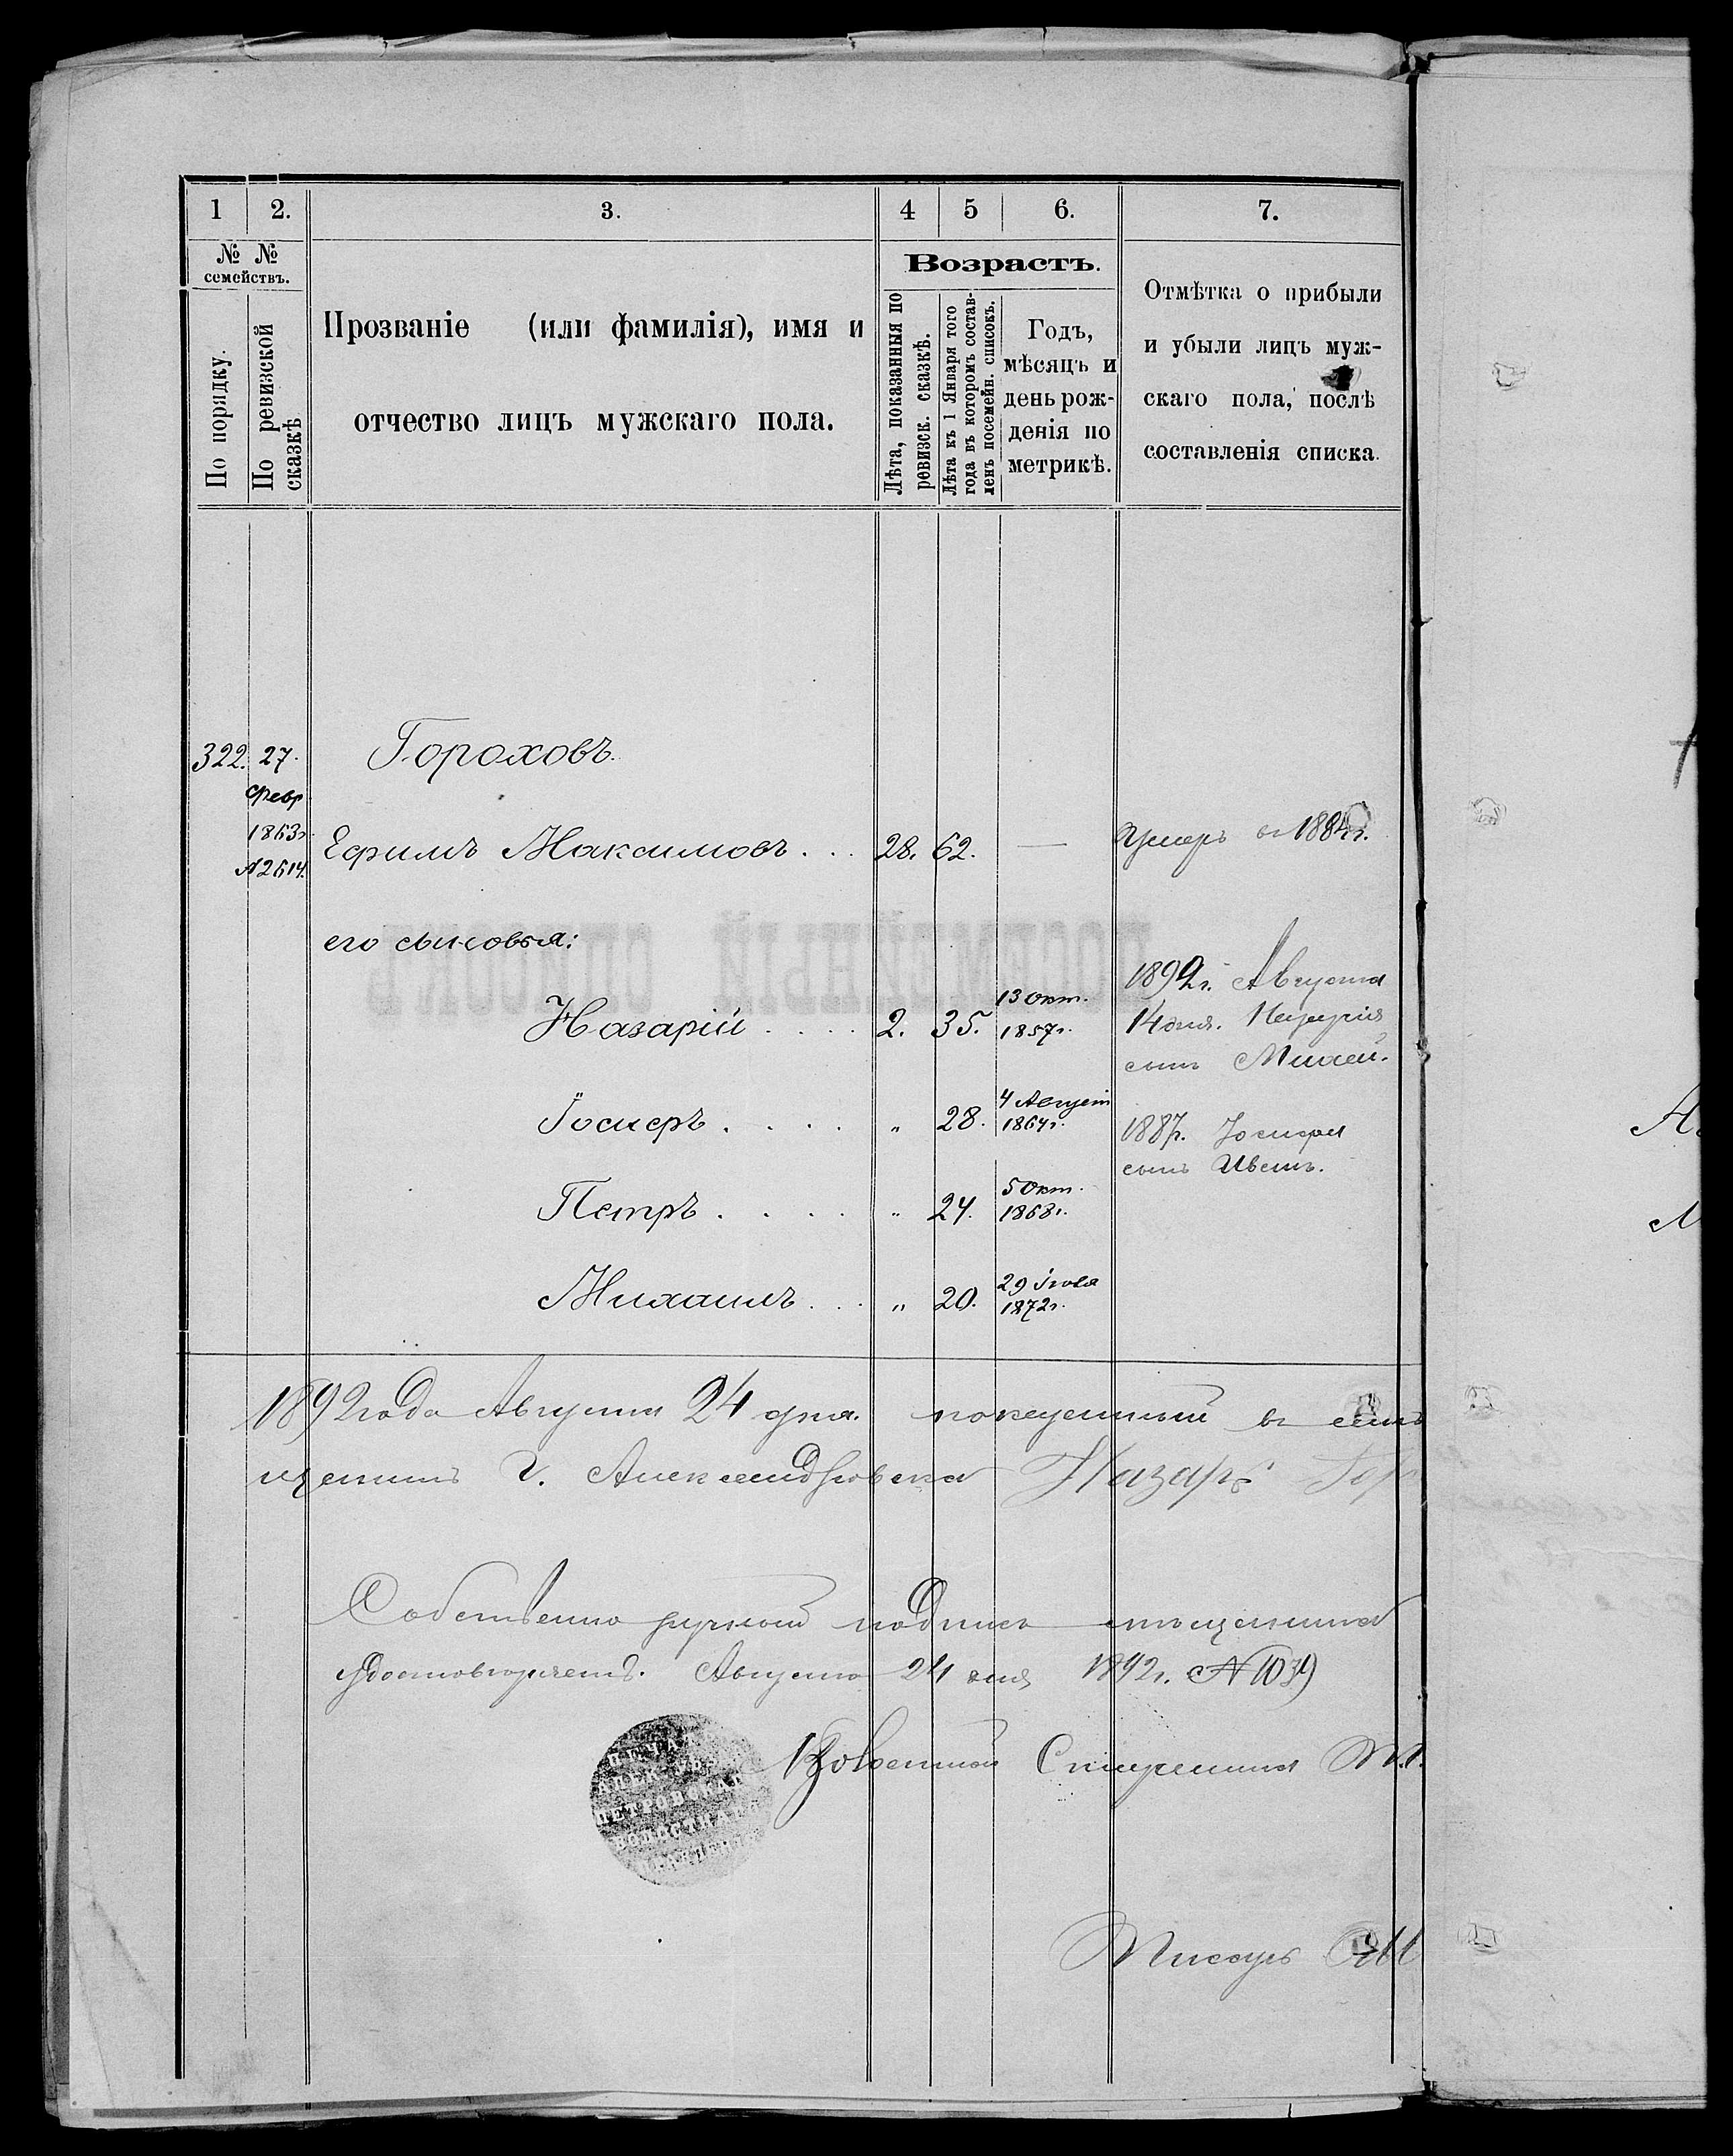 1 2. 3. 4 5 6. 7.
№ № семействъ.
По порядку.
По ревизской сказкѣ
Прозваніе (или фамилія), имя и
отчество лицъ мужскаго пола.
Возрастъ.
Лѣта, показанныя по
ревизск. сказкѣ.
Лѣта къ 1 Января того
года въ которомъ состав-
ленъ посемейн. списокъ.
Годъ,
мѣсяцъ и
день рож-
денія по
метрикѣ.
Отмѣтка о прибыли
и убыли лицъ муж-
скаго пола, послѣ
составленія списка.
322. 27. Гороховъ.
февр
1863г.
№2614.
Ефимъ Максимовъ . . . 28. 62. — Умеръ въ 1884г.
ПОСЕМЕЙНЫЙ СПИСОКЪ
его сыновья:
Назарій . . . . 2. 35. 13 Окт. 1857г.
1892г. Августа
14 дня.
сынъ Михей.
Іосифъ . . . . „ 28. 4 Август 1864г.
1887г. Іосифа
сынъ
Петръ . . . . „ 24. 5 Окт. 1868г.
Михаилъ . . . „ 20. 29 Іюля 1872г.
1892 года Августа 24 дня.
г. Александровска Назаръ Гор
Собственно ручной подпись мѣщанина
удостовѣряетъ. Августа 24 дня 1892г. № 1039
ПЕТРОВСКАГО
ВОЛОСТНАГО
Волостной Старшина
Писарь